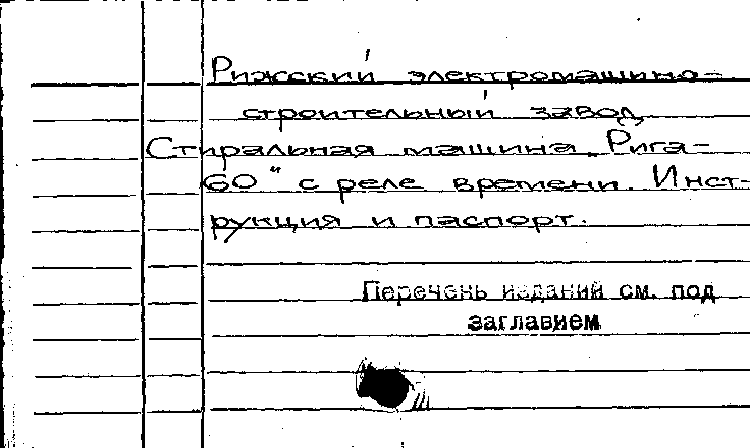 Рижский электромашино-
строительный завод
Стиральная машина „Рига-
60" с реле времени. Инст-
рукция и паспорт.
Перечень изданий см. под
заглавием